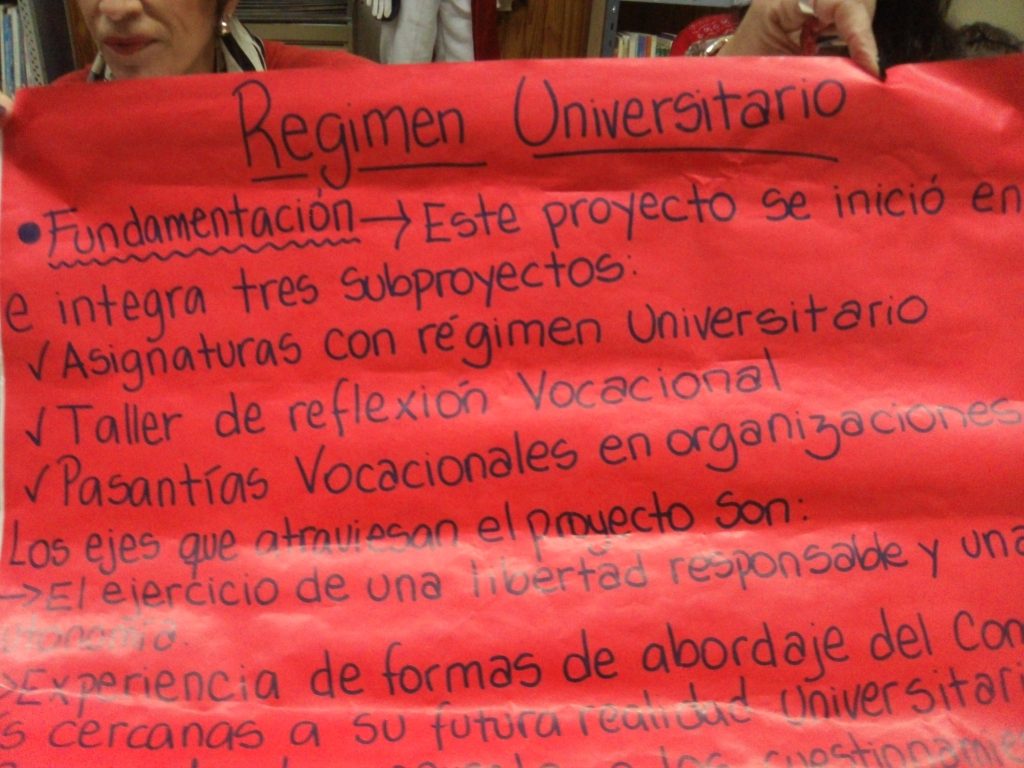 Regimen Universitario
• Fundamentación → Este proyecto se inició en
e integra tres subproyectos:
✓ Asignaturas con régimen Universitario
✓ Taller de reflexión Vocacional
✓ Pasantías Vocacionales en organizaciones
Los ejes que atraviesan el proyecto son:
→ El ejercicio de una libertad responsable y una
Experiencia de formas de abordaje del Con
s cercanas a su futura realidad Universitari
a los cuestionamie